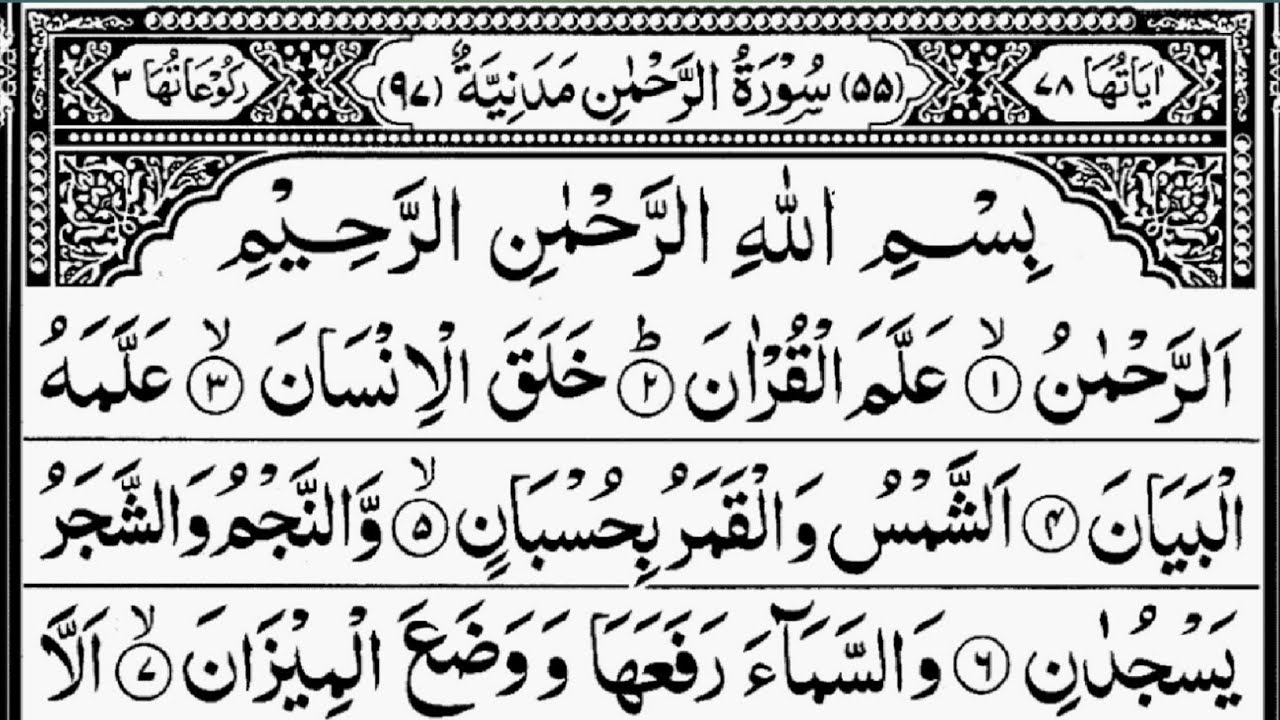 اٰيَاتُهَا ٧٨ (٥٥) سُوْرَةُ الرَّحْمٰنِ مَدَنِيَّةٌ (٩٧) رُكُوْعَاتُهَا ٣
بِسْمِ اللّٰهِ الرَّحْمٰنِ الرَّحِيْمِ
اَلرَّحْمٰنُ ۙ﴿١﴾ عَلَّمَ الْقُرْاٰنَ ؕ﴿٢﴾ خَلَقَ الْاِنْسَانَ ۙ﴿٣﴾ عَلَّمَهُ
الْبَيَانَ ﴿۴﴾ اَلشَّمْسُ وَالْقَمَرُ بِحُسْبَانٍ ۙ﴿۵﴾ وَّالنَّجْمُ وَالشَّجَرُ
يَسْجُدٰنِ ﴿۶﴾ وَالسَّمَآءَ رَفَعَهَا وَوَضَعَ الْمِيْزَانَ ۙ﴿٧﴾ اَلَّا